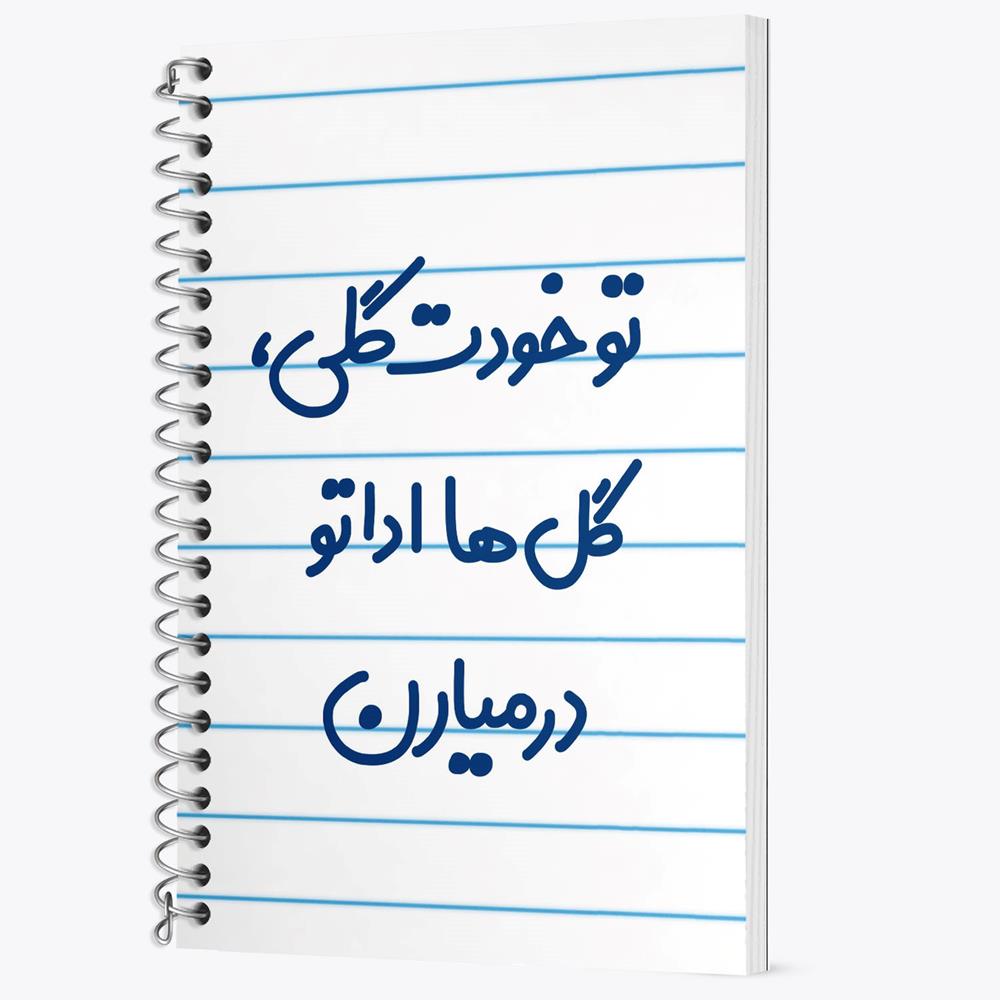 تو خودت گلی،
گل ها اداتو
درمیارن